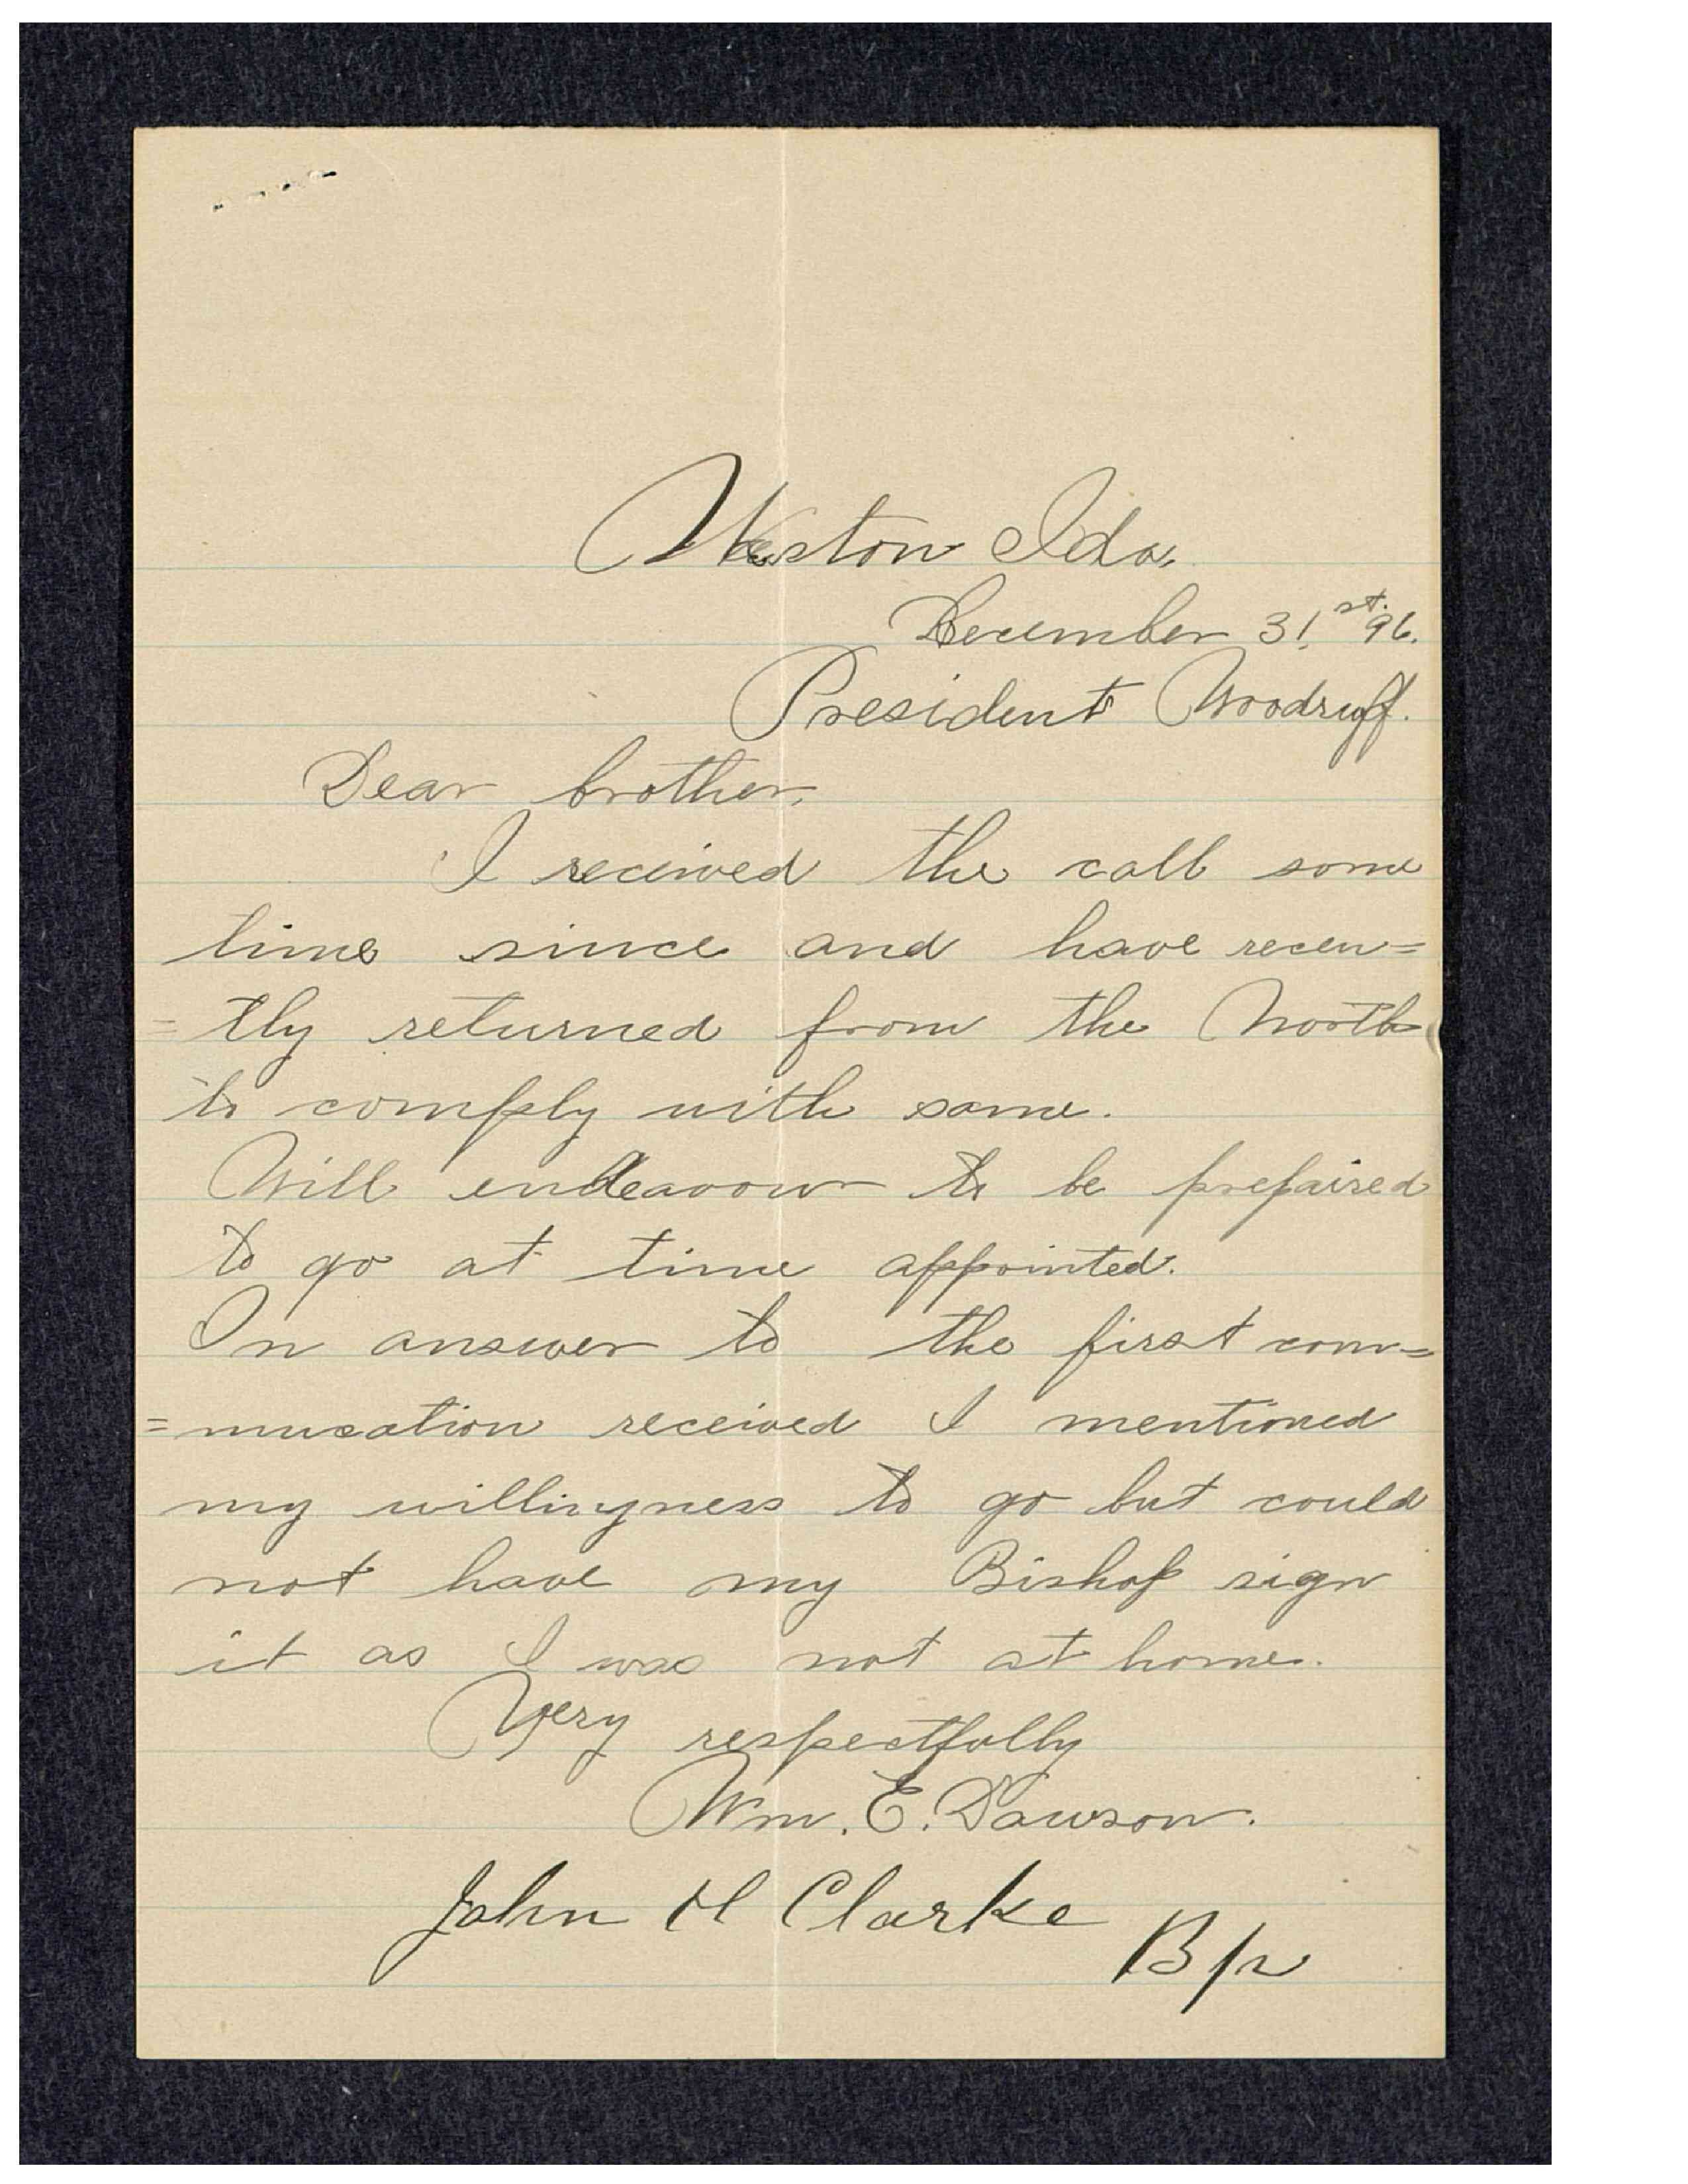 Weston Ida.
December 31.st. 96.
President Woodruff.
Dear brother.
I received the call some
time since and have recen=
=tly returned from the North
to comply with same.
Will endeavour to be prepaired
to go at time appointed.
In answer to the first com=
=mucation received I mentioned
my willingness to go but could
not have my Bishop sign
it as I was not at home.
Very respectfully
Wm. E. Dawson.
John H Clarke
Bp